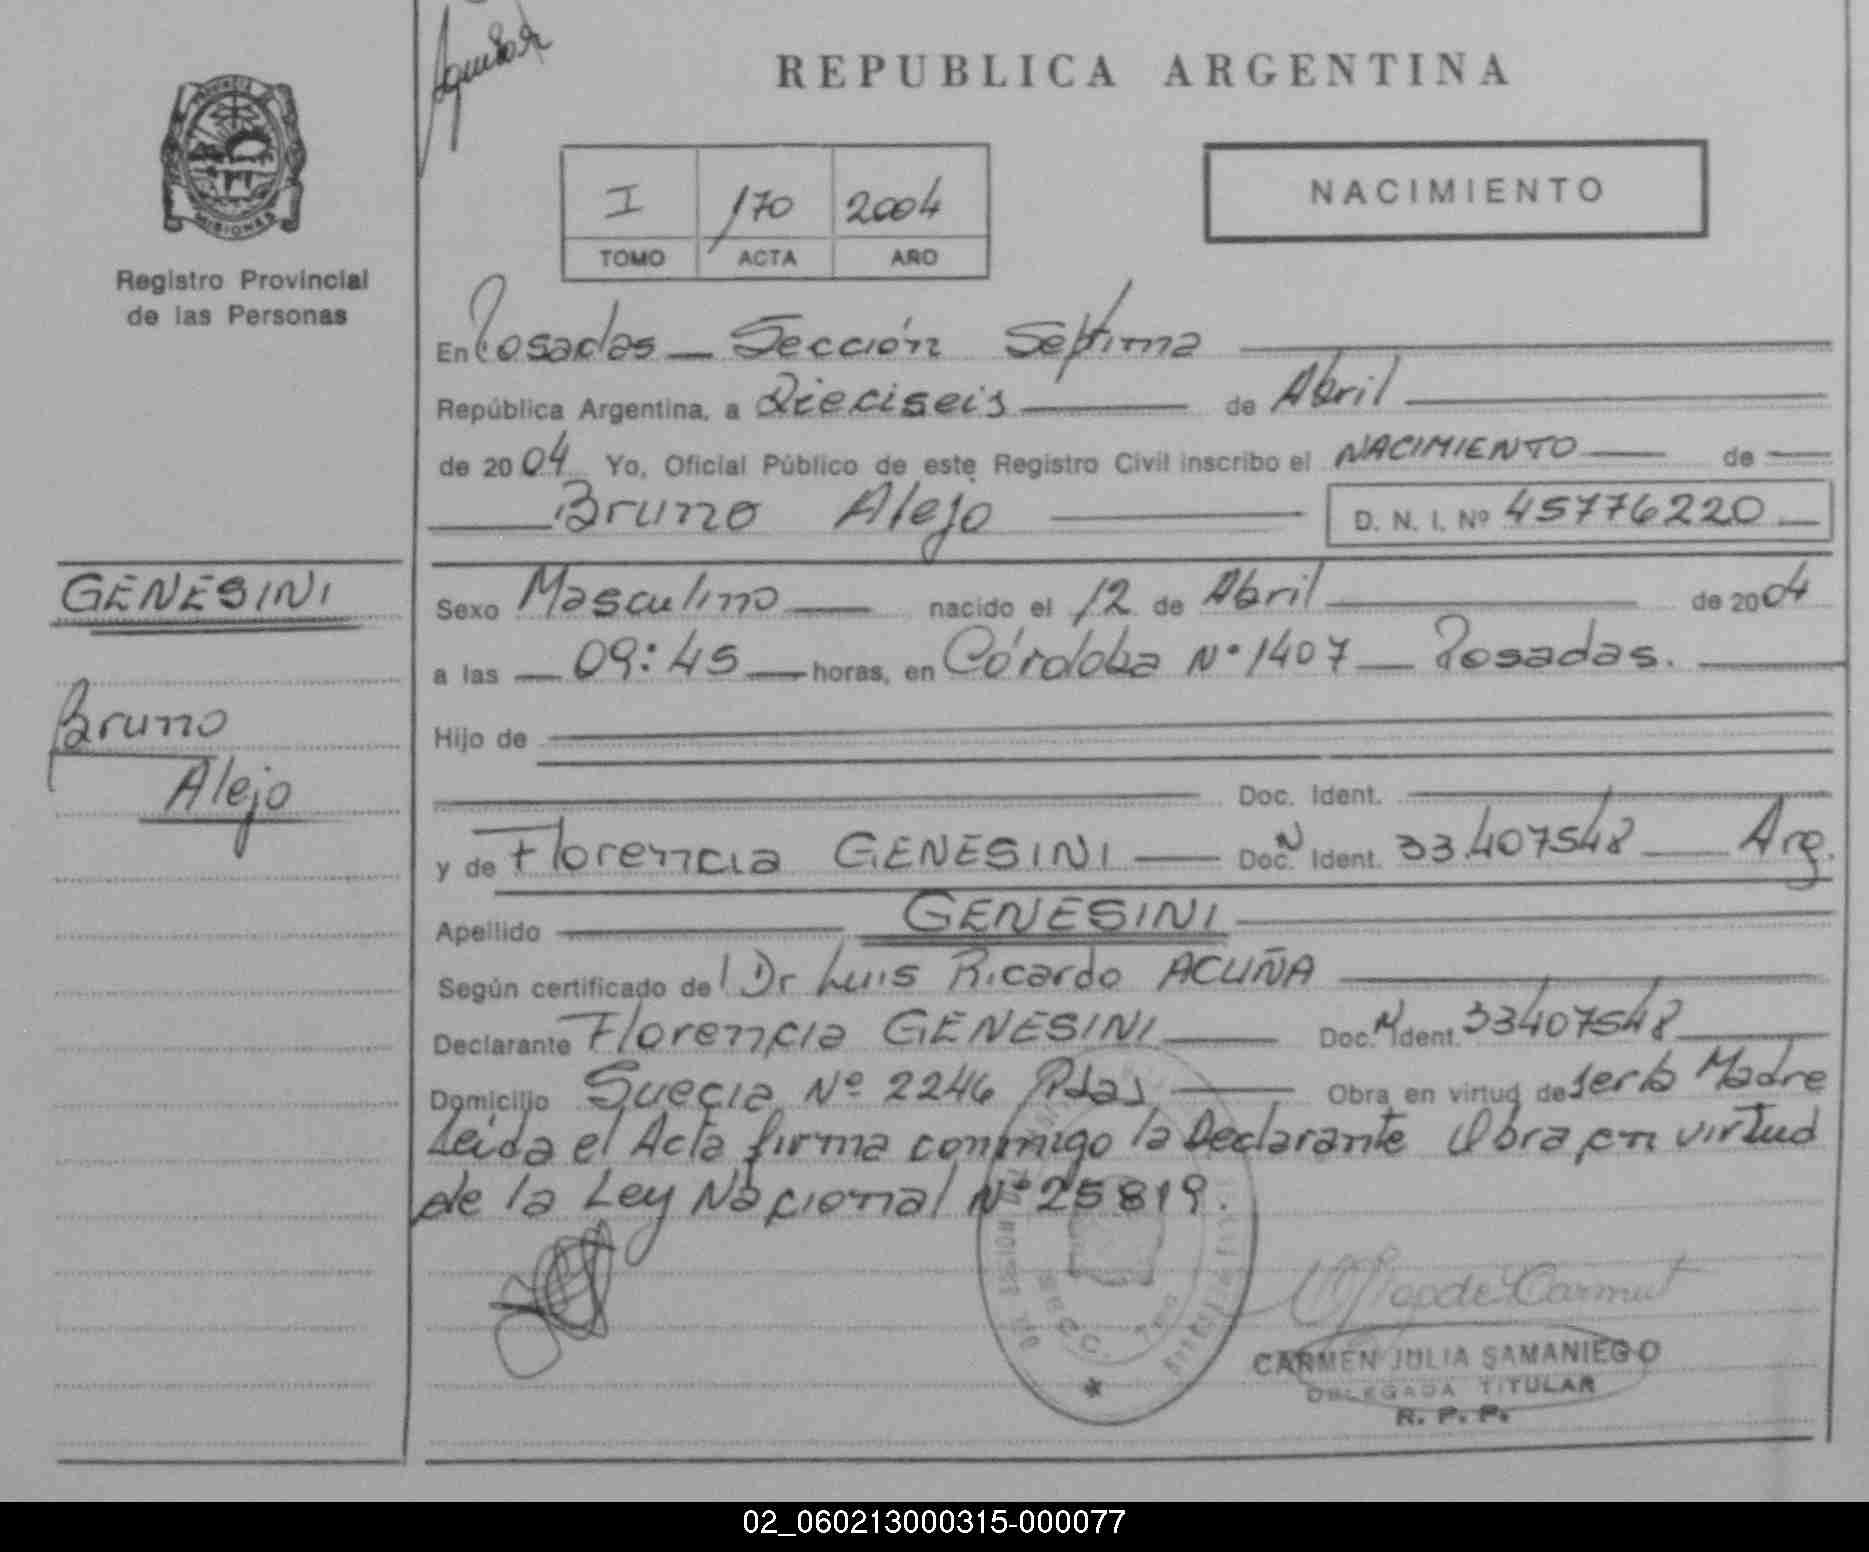 Aguilar
PROVINCIA DE
MISIONES
Registro Provincial
de las Personas
REPUBLICA ARGENTINA
I 170 2004
TOMO ACTA AÑO
NACIMIENTO
En Posadas — Sección Séptima
República Argentina, a Dieciseis de Abril
de 2004 Yo, Oficial Público de este Registro Civil inscribo el NACIMIENTO de
Bruno Alejo D. N. I. Nº 45776220
GENESINI
Bruno
Alejo
Sexo Masculino nacido el 12 de Abril de 2004
a las 09:45 horas, en Córdoba Nº 1407 — Posadas.
Hijo de
Doc. Ident.
y de Florencia GENESINI Doc. N Ident. 33.407548 Arg.
Apellido GENESINI
Según certificado del Dr Luis Ricardo ACUÑA
Declarante Florencia GENESINI Doc. N Ident. 33407548
Domicilio Suecia Nº 2246 Pdas Obra en virtud de ser la Madre
Leida el Acta firma conmigo la Declarante Obra en virtud
de la Ley Nacional Nº 25819.
SECC. 7ma
CARMEN JULIA SAMANIEGO
DELEGADA TITULAR
R. P. P.
02_060213000315-000077